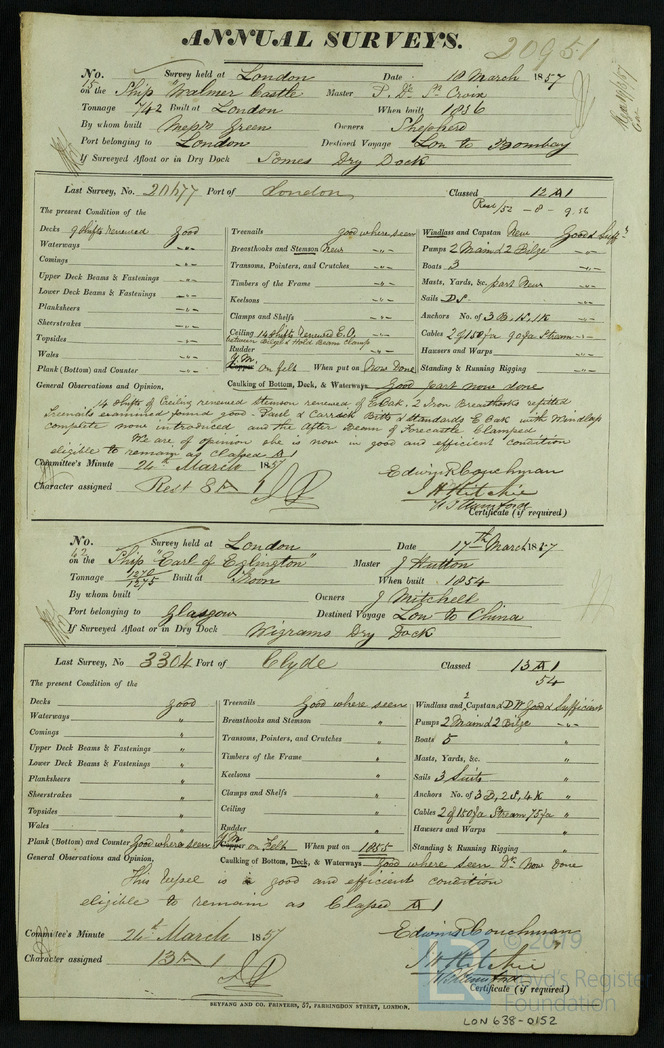 ANNUAL SURVEYS.
20951
No. 15 Survey held at London Date 18 March 1857
on the Ship "Walmer Castle Master P. De Ste Croix
Tonnage 742 Built at London When built 1836
By whom built Messrs Green Owners Shepherd
Port belonging to London Destined Voyage Lon to Bombay
If Surveyed Afloat or in Dry Dock Somes Dry Dock
Last Survey, No. 20477 Port of London Classed 12 A 1
Rest/52 - 8 -
The present Condition of the
Decks 9 shifts renewed good
Waterways
Comings
Upper Deck Beams & Fastenings
Lower Deck Beams & Fastenings
Planksheers
Sheerstrakes
Topsides
Wales
Plank (Bottom) and Counter
Treenails good where seen
Breasthooks and Stemson New
Transoms, Pointers, and Crutches
Timbers of the Frame
Keelsons
Clamps and Shelfs
Ceiling 14 shifts renewed E.O.
between Bilge & Hold Beam Clamp
Rudder
Y.M.
Copper on felt When put on Now Done
Windlass and Capstan New Good & Sufft
Pumps 2 Main & 2 Bilge
Boats 3
Masts, Yards, &c. part New
Sails D.S.
Anchors No. of 3 B, 1S, 1K
Cables 2 of 150fa 90fa Stream
Hawsers and Warps
Standing & Running Rigging
General Observations and Opinion, Caulking of Bottom, Deck, & Waterways Good part now done
14 Shifts of Ceiling renewed Stemson renewed of E. Oak, 2 Iron Breasthooks refitted
Treenails examined found good - Paul & Carrick Bitts & Standards E Oak with Windlass
complete now introduced and the After Beam of Forecastle Clamped.
We are of opinion she is now in good and efficient condition
eligible to remain as classed A 1
Committee's Minute 24th March 1857
Character assigned Rest 8 A 1
Edwin R Couchman
J H Ritchie
Certificate (if required)
No. 62 Survey held at London Date 17th March 1857
on the Ship "Earl of Eglington" Master J Hutton
Tonnage 1276/1275 Built at Troon When built 1854
By whom built Owners J Mitchell
Port belonging to Glasgow Destined Voyage Lon to China
If Surveyed Afloat or in Dry Dock Wigrams Dry Dock
Last Survey, No 3304 Port of Clyde Classed 13 A 1
54
The present Condition of the
Decks good
Waterways "
Comings "
Upper Deck Beams & Fastenings "
Lower Deck Beams & Fastenings "
Planksheers "
Sheerstrakes "
Topsides "
Wales "
Plank (Bottom) and Counter Good where seen
Treenails Good where seen
Breasthooks and Stemson "
Transoms, Pointers, and Crutches "
Timbers of the Frame "
Keelsons "
Clamps and Shelfs "
Ceiling "
Rudder "
Y.M.
Copper on Felt When put on 1855
Windlass and 2 Capstan & DW Good & Sufficient
Pumps 2 Main & 2 Bilge
Boats 5 "
Masts, Yards, &c. "
Sails 3 Suits "
Anchors No. of 3 B, 2 S, 4 K "
Cables 2 of 150fa Stream 75fa "
Hawsers and Warps "
Standing & Running Rigging "
General Observations and Opinion, Caulking of Bottom, Deck, & Waterways Good where seen Dk Now Done
This Vessel is in good and efficient condition
eligible to remain as Classed A 1
Committee's Minute 24th March 1857
Character assigned 13 A 1
Edwin R Couchman
J H Ritchie
Certificate (if required)
SEYFANG AND CO. PRINTERS, 57, FARRINGDON STREET, LONDON.
© 2019
Lloyd's Register
Foundation
LON 638-0152